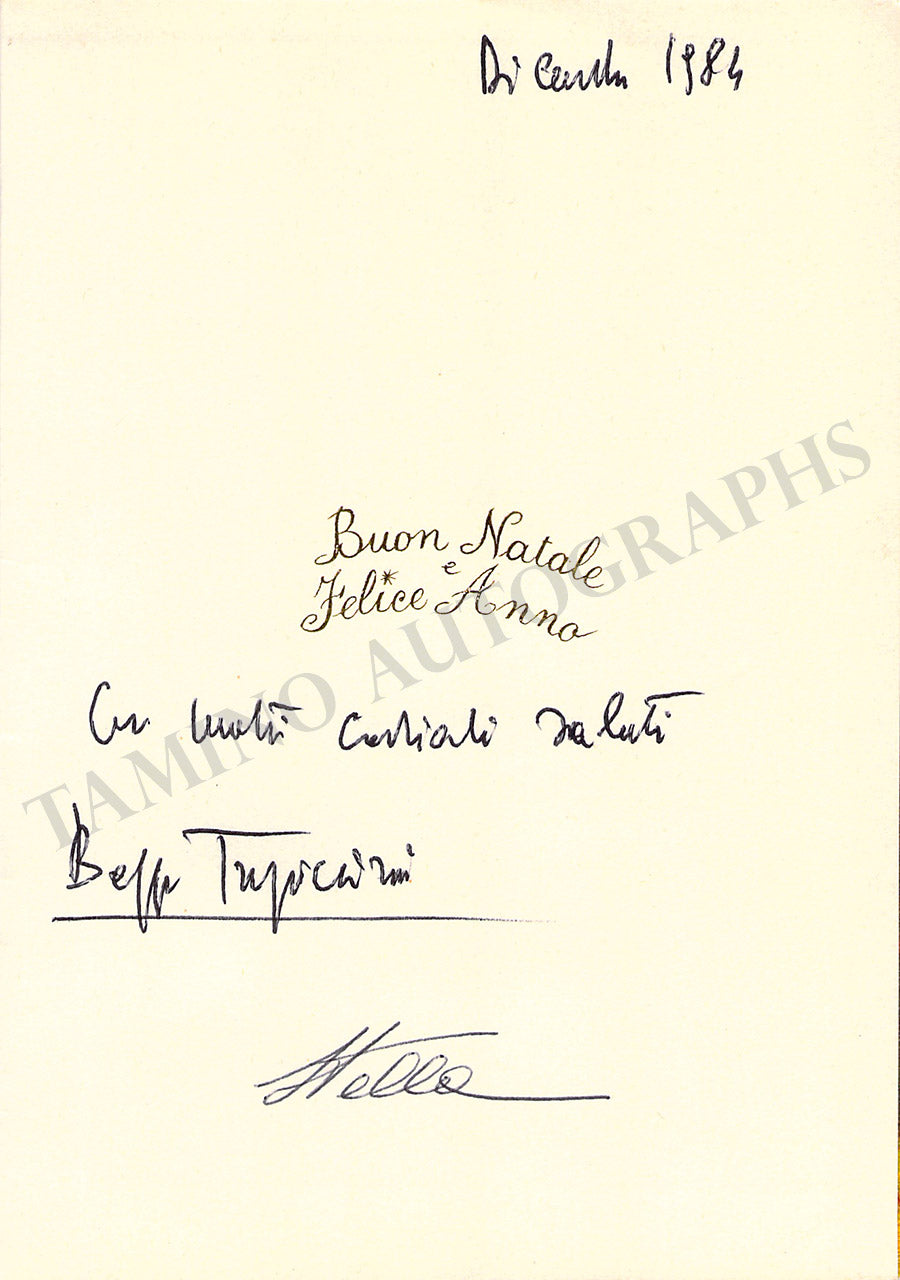 Dicembre 1984
Buon Natale
e
Felice Anno
TAMINO AUTOGRAPHS
Con molti cordiali saluti
Stella